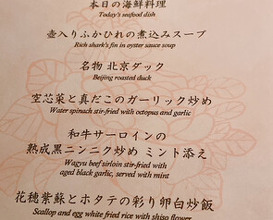 本日の海鮮料理
Today's seafood dish
壺入りふかひれの煮込みスープ
Rich shark's fin in oyster sauce soup
名物 北京ダック
Beijing roasted duck
空芯菜と真だこのガーリック炒め
Water spinach stir-fried with octopus and garlic
和牛サーロインの
熟成黒ニンニク炒め ミント添え
Wagyu beef sirloin stir-fried with
aged black garlic, served with mint
花穂紫蘇とホタテの彩り卵白炒飯
Scallop and egg white fried rice with shiso flower